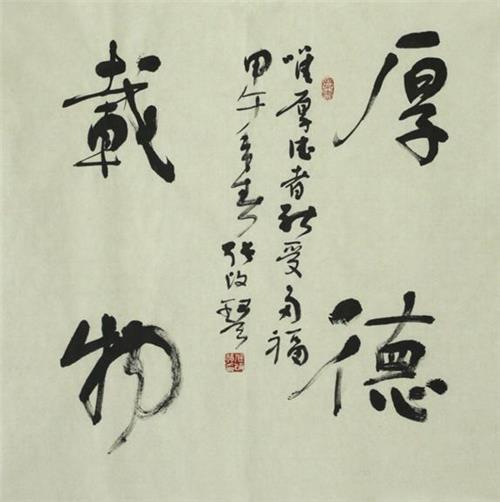 厚德
載物
唯厚德者能受多福
甲午年春 张改琴